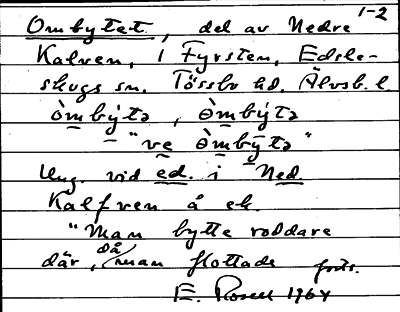 1-2
Ombytet, del av Nedre
Kalven, i Fyrsten, Edsle-
skogs sn. Tössbo hd. Älvsb. l.
òmbýtə, òmbýtə
– "ve òmbýtə"
Ung. vid ed. i Ned.
Kalfven å ek.
"Man bytte roddare
där, då man flottade forts.
E. Rosell 1964